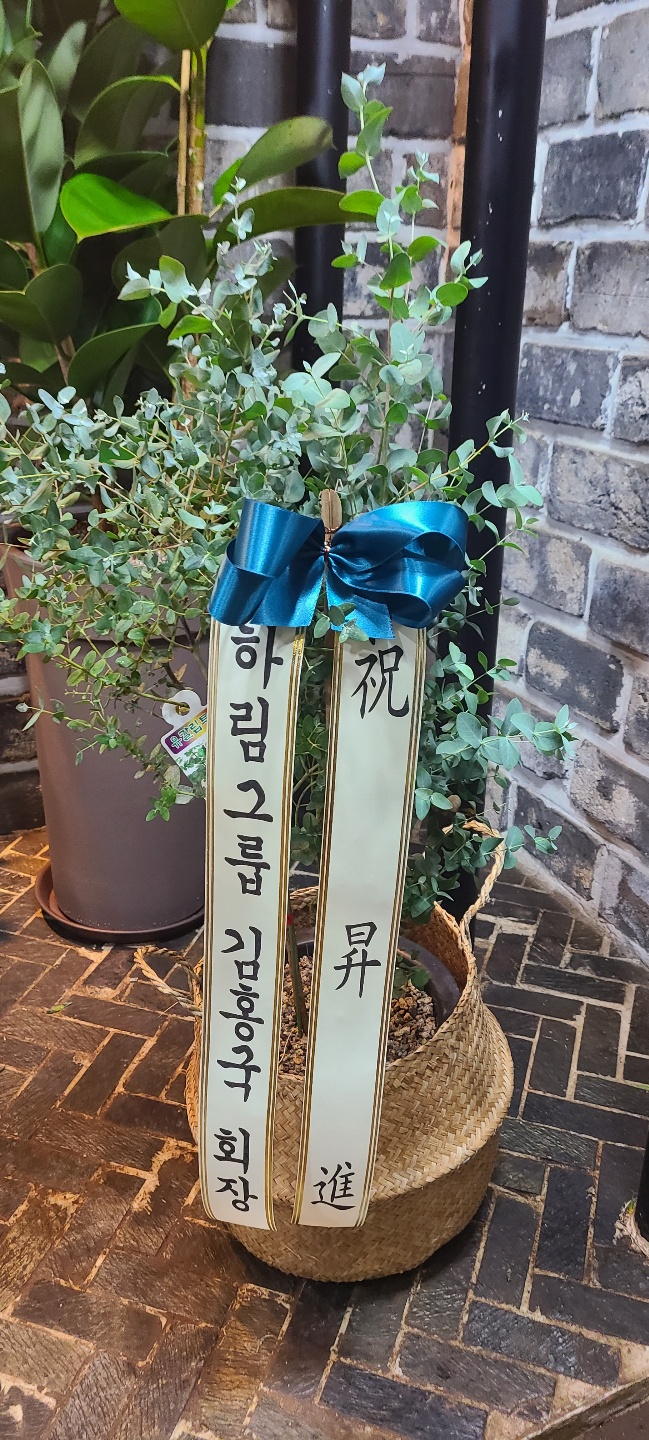 하림그룹 김홍국 회장
祝昇進